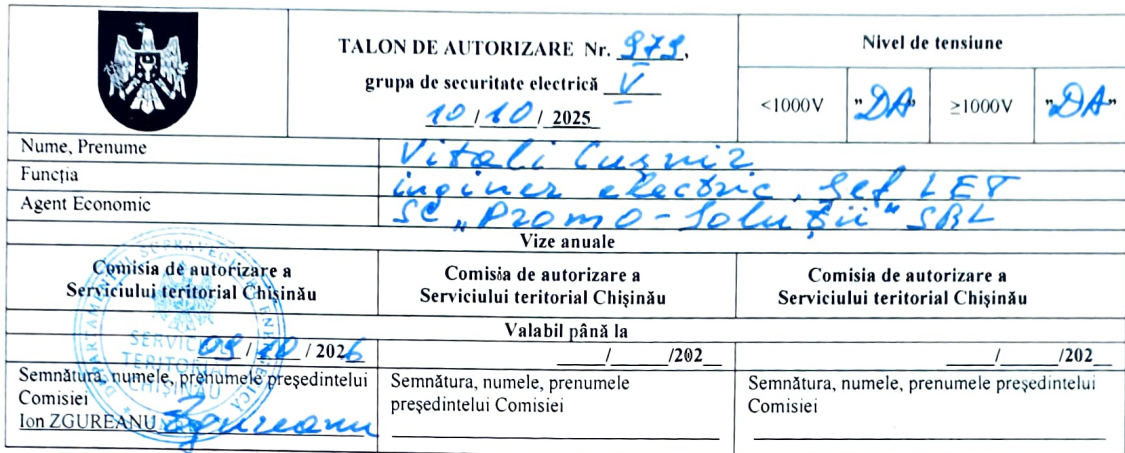 TALON DE AUTORIZARE Nr. 979,
grupa de securitate electrică V
10 / 10 / 2025
Nivel de tensiune
<1000V "DA" ≥1000V "DA"
Nume, Prenume Vitali Cușnir
Funcția inginer electric, șef LET
Agent Economic SC „Promo-Soluții" SRL
Vize anuale
Comisia de autorizare a
Serviciului teritorial Chișinău
Comisia de autorizare a
Serviciului teritorial Chișinău
Comisia de autorizare a
Serviciului teritorial Chișinău
Valabil până la
09 / 10 / 2026
___/______/202__
___/______/202__
Semnătura, numele, prenumele președintelui
Comisiei
Ion ZGUREANU Zgureanu
Semnătura, numele, prenumele
președintelui Comisiei
Semnătura, numele, prenumele președintelui
Comisiei
SERVICIUL
TERITORIAL
CHIȘINĂU